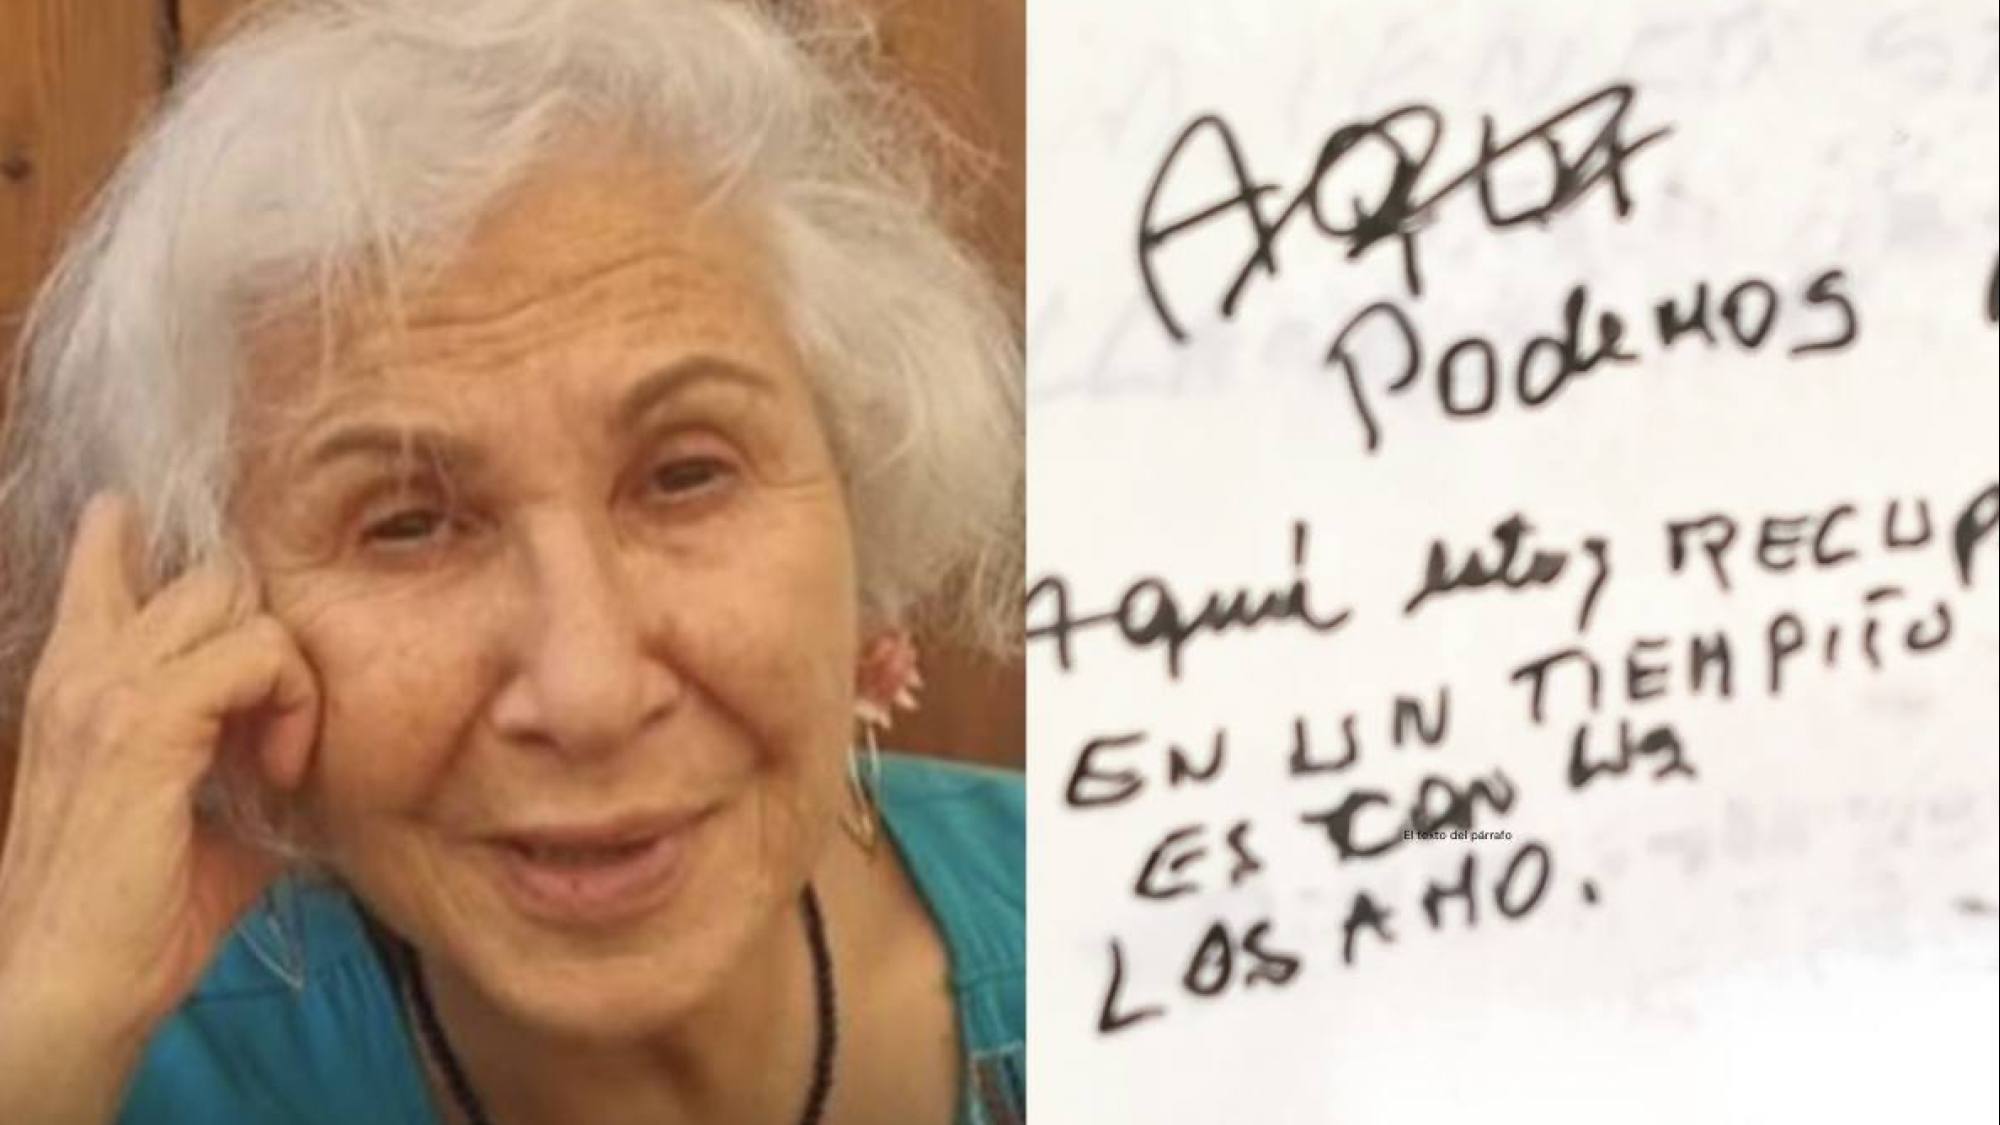 Podemos
Aquí estoy RECUP
EN UN TIEMPITO
ES CON US
El texto del párrafo
LOS AMO.